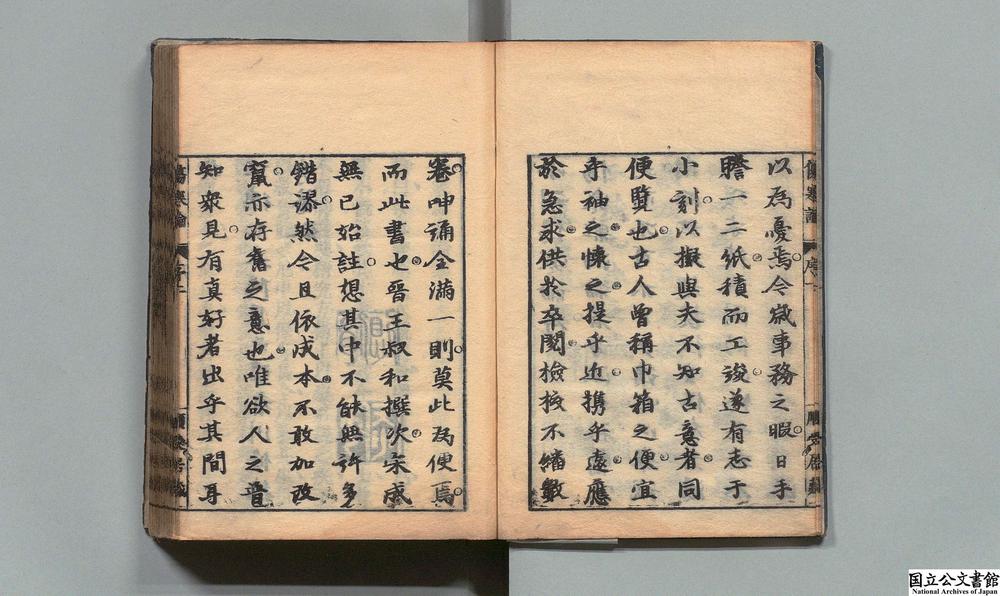 以為憂焉今歲事務之暇日手
謄一二紙積而工竣遂有志于
小刻以擬與夫不知古意者同
便覽也古人曾稱巾箱之便宜
乎袖之懷之提乎近携乎遠應
於急求供於卒閱檢挍不繙數
卷呻誦全滿一則莫此為便焉
而此書也晉王叔和撰次宋成
無已始註想其中不能無許多
錯謬然今且依成本不敢加改
竄亦存舊之意也唯欲人之普
知衆見有真好者出乎其間耳
傷寒論
序二
國立公文書館
National Archives of Japan